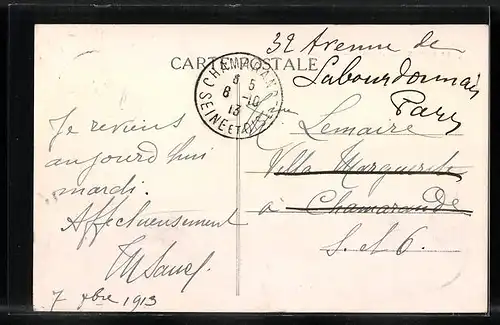 32 Avenue de
Labourdonnais
Paris
CARTE POSTALE
CHAMARANDE
8 5
8 -10
13
SEINE ET OISE
Je reviens
aujourd'hui
mardi.
Affectueusement
7 9bre 1913
Lemaire
Villa Marguerite
à Chamarande
S. et O.